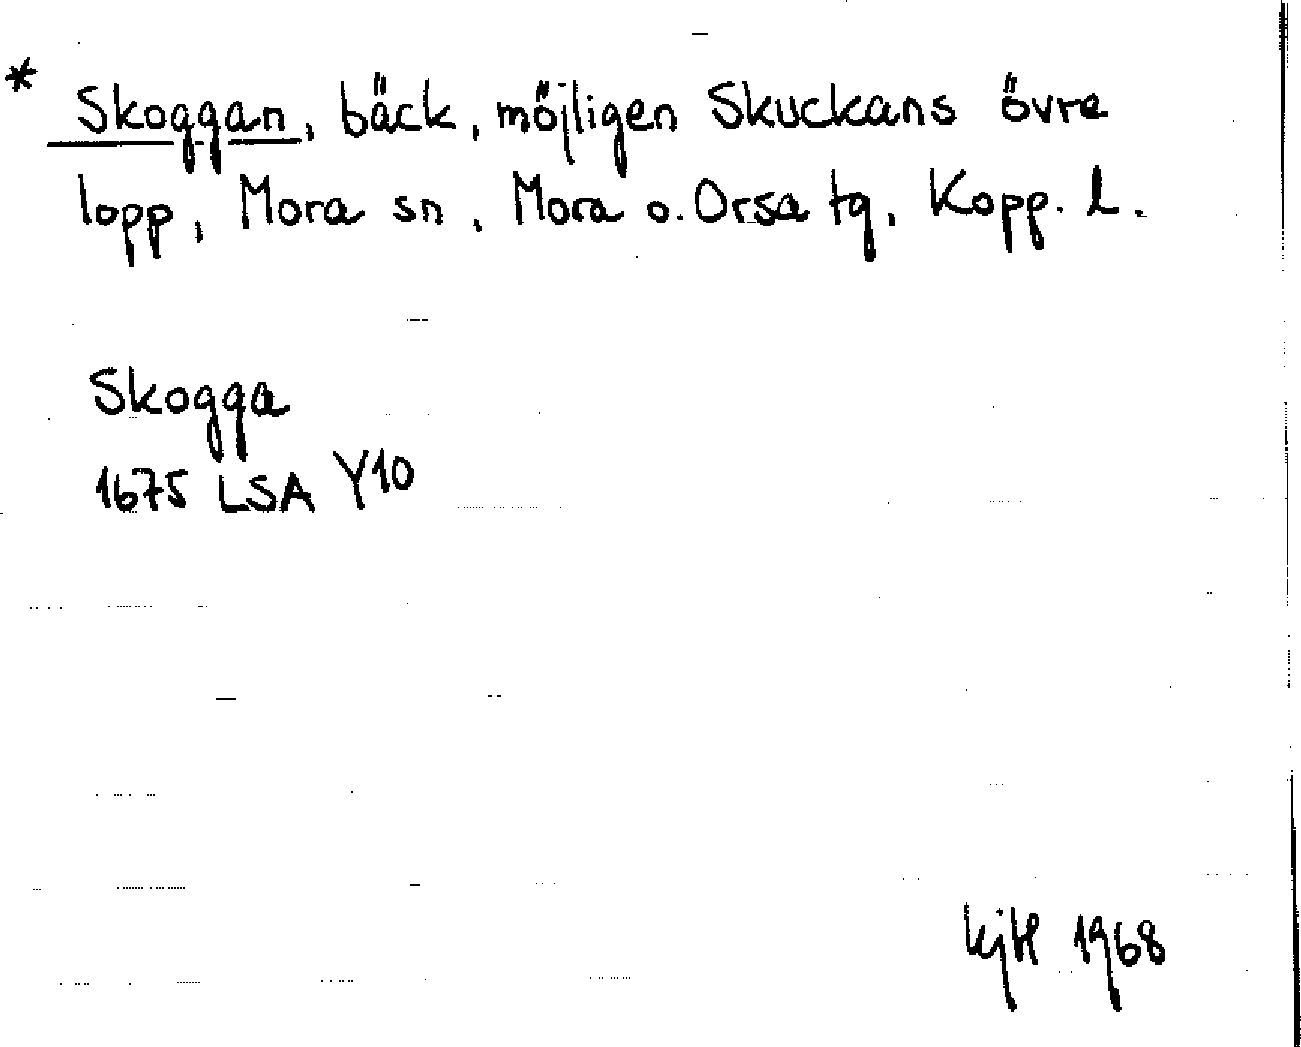 * Skoggan, bäck, möjligen Skuckans övre
lopp, Mora sn, Mora o. Orsa tg, Kopp. l.
Skogga
1675 LSA Y10
KjH 1968